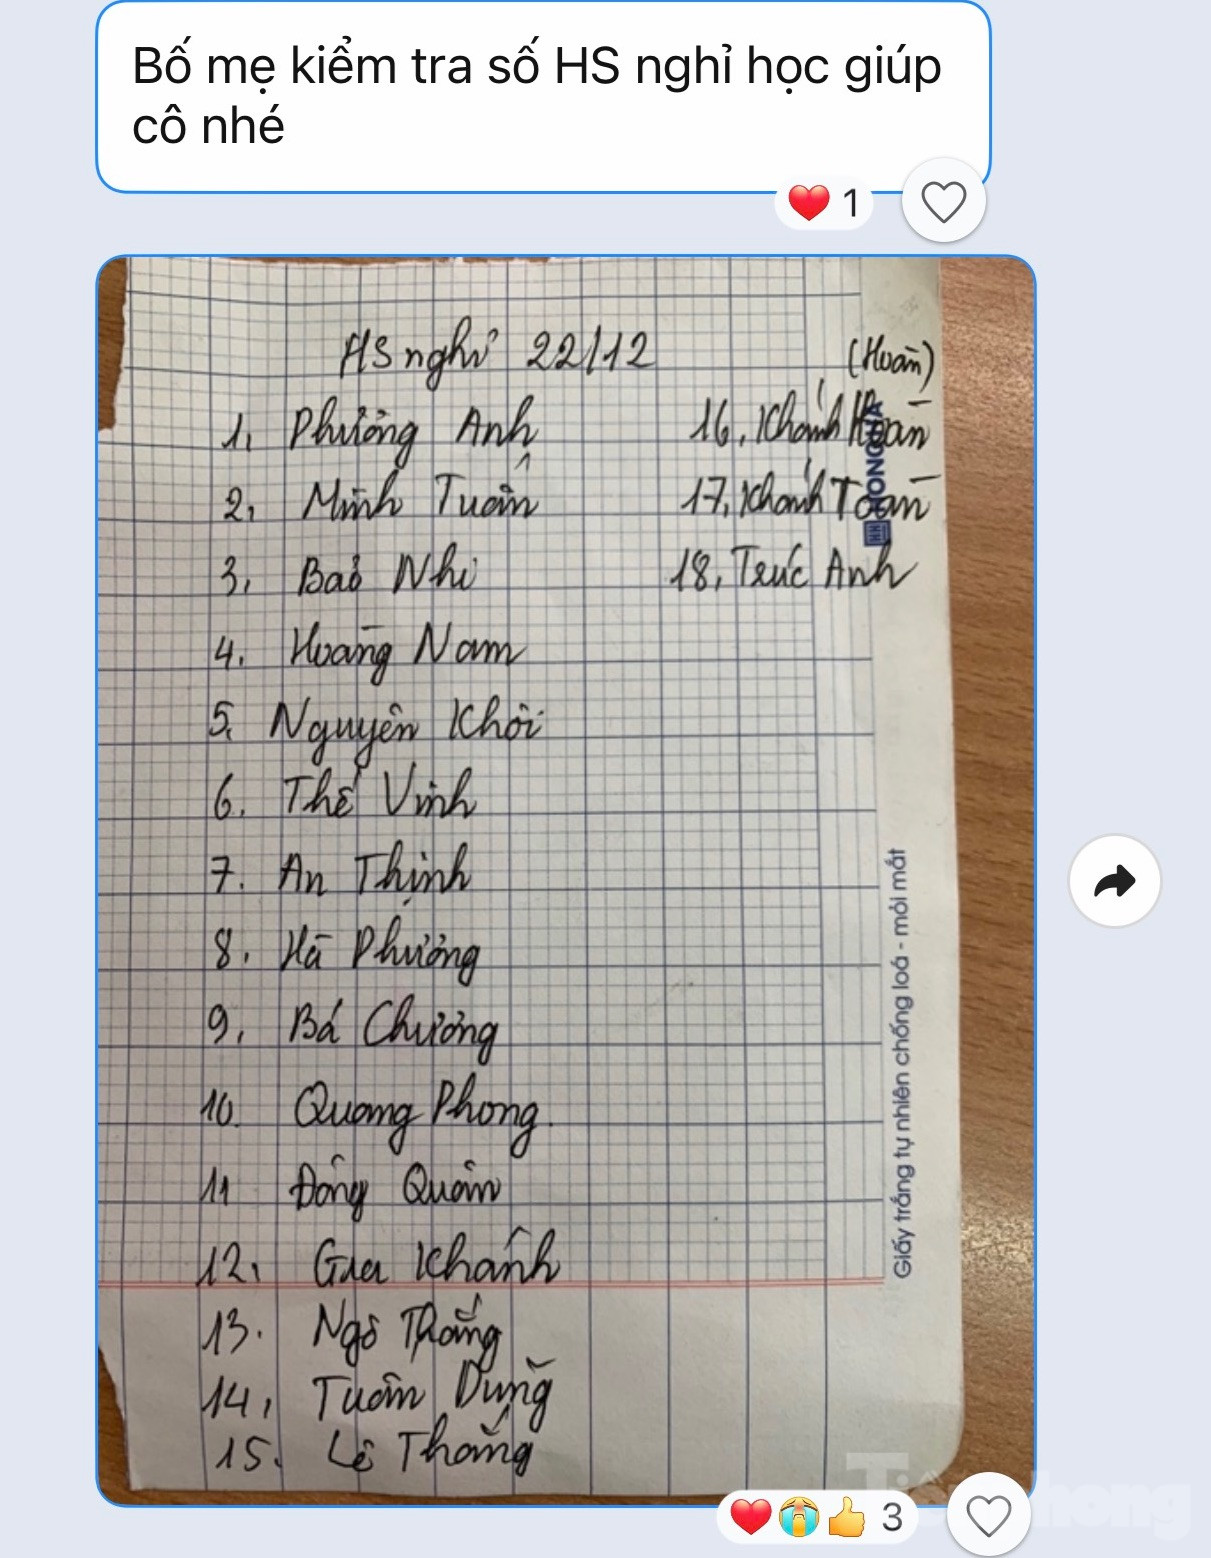 Bố mẹ kiểm tra số HS nghỉ học giúp
cô nhé
1
HS nghỉ 22/12
(Hoàn)
1, Phương Anh
2, Minh Tuấn
3, Bảo Nhi
4. Hoàng Nam
5. Nguyên Khôi
6. Thế Vinh
7. An Thịnh
8, Hà Phương
9, Bá Chương
10. Quang Phong.
11 Đông Quân
12, Gia Khánh
13. Ngô Thắng
14, Tuấn Dũng
15. Lê Thắng
16, Khánh Hoàn
17, Khánh Toàn
18, Trúc Anh
HONG HA
Giấy trắng tự nhiên chống loá - mỏi mắt
3
Tiền Phong